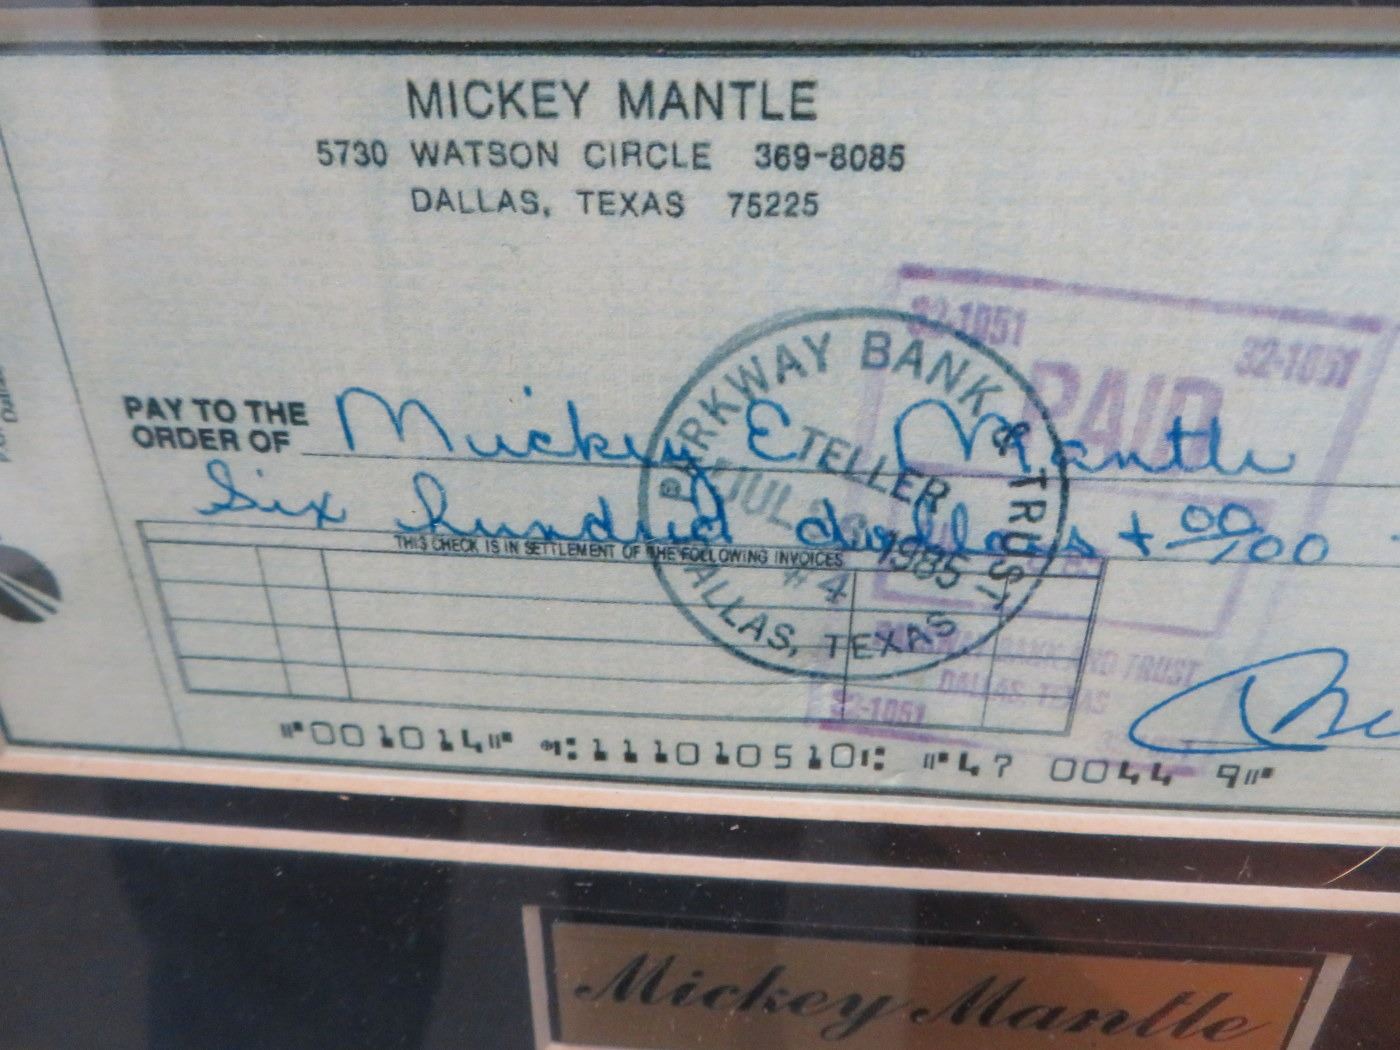 MICKEY MANTLE
5730 WATSON CIRCLE 369-8085
DALLAS, TEXAS 75225
32-1051 32-1051
PAID
PARKWAY BANK & TRUST
PAY TO THE ORDER OF Mickey E Mantle
TELLER
JUL 1985
Six hundred dollars + 00/100
THIS CHECK IS IN SETTLEMENT OF THE FOLLOWING INVOICES
#4
DALLAS, TEXAS
BANK AND TRUST
DALLAS, TEXAS
32-1051
⑈001014⑈ ⑆111010510⑆ ⑈47 0044 9⑈
Mickey Mantle